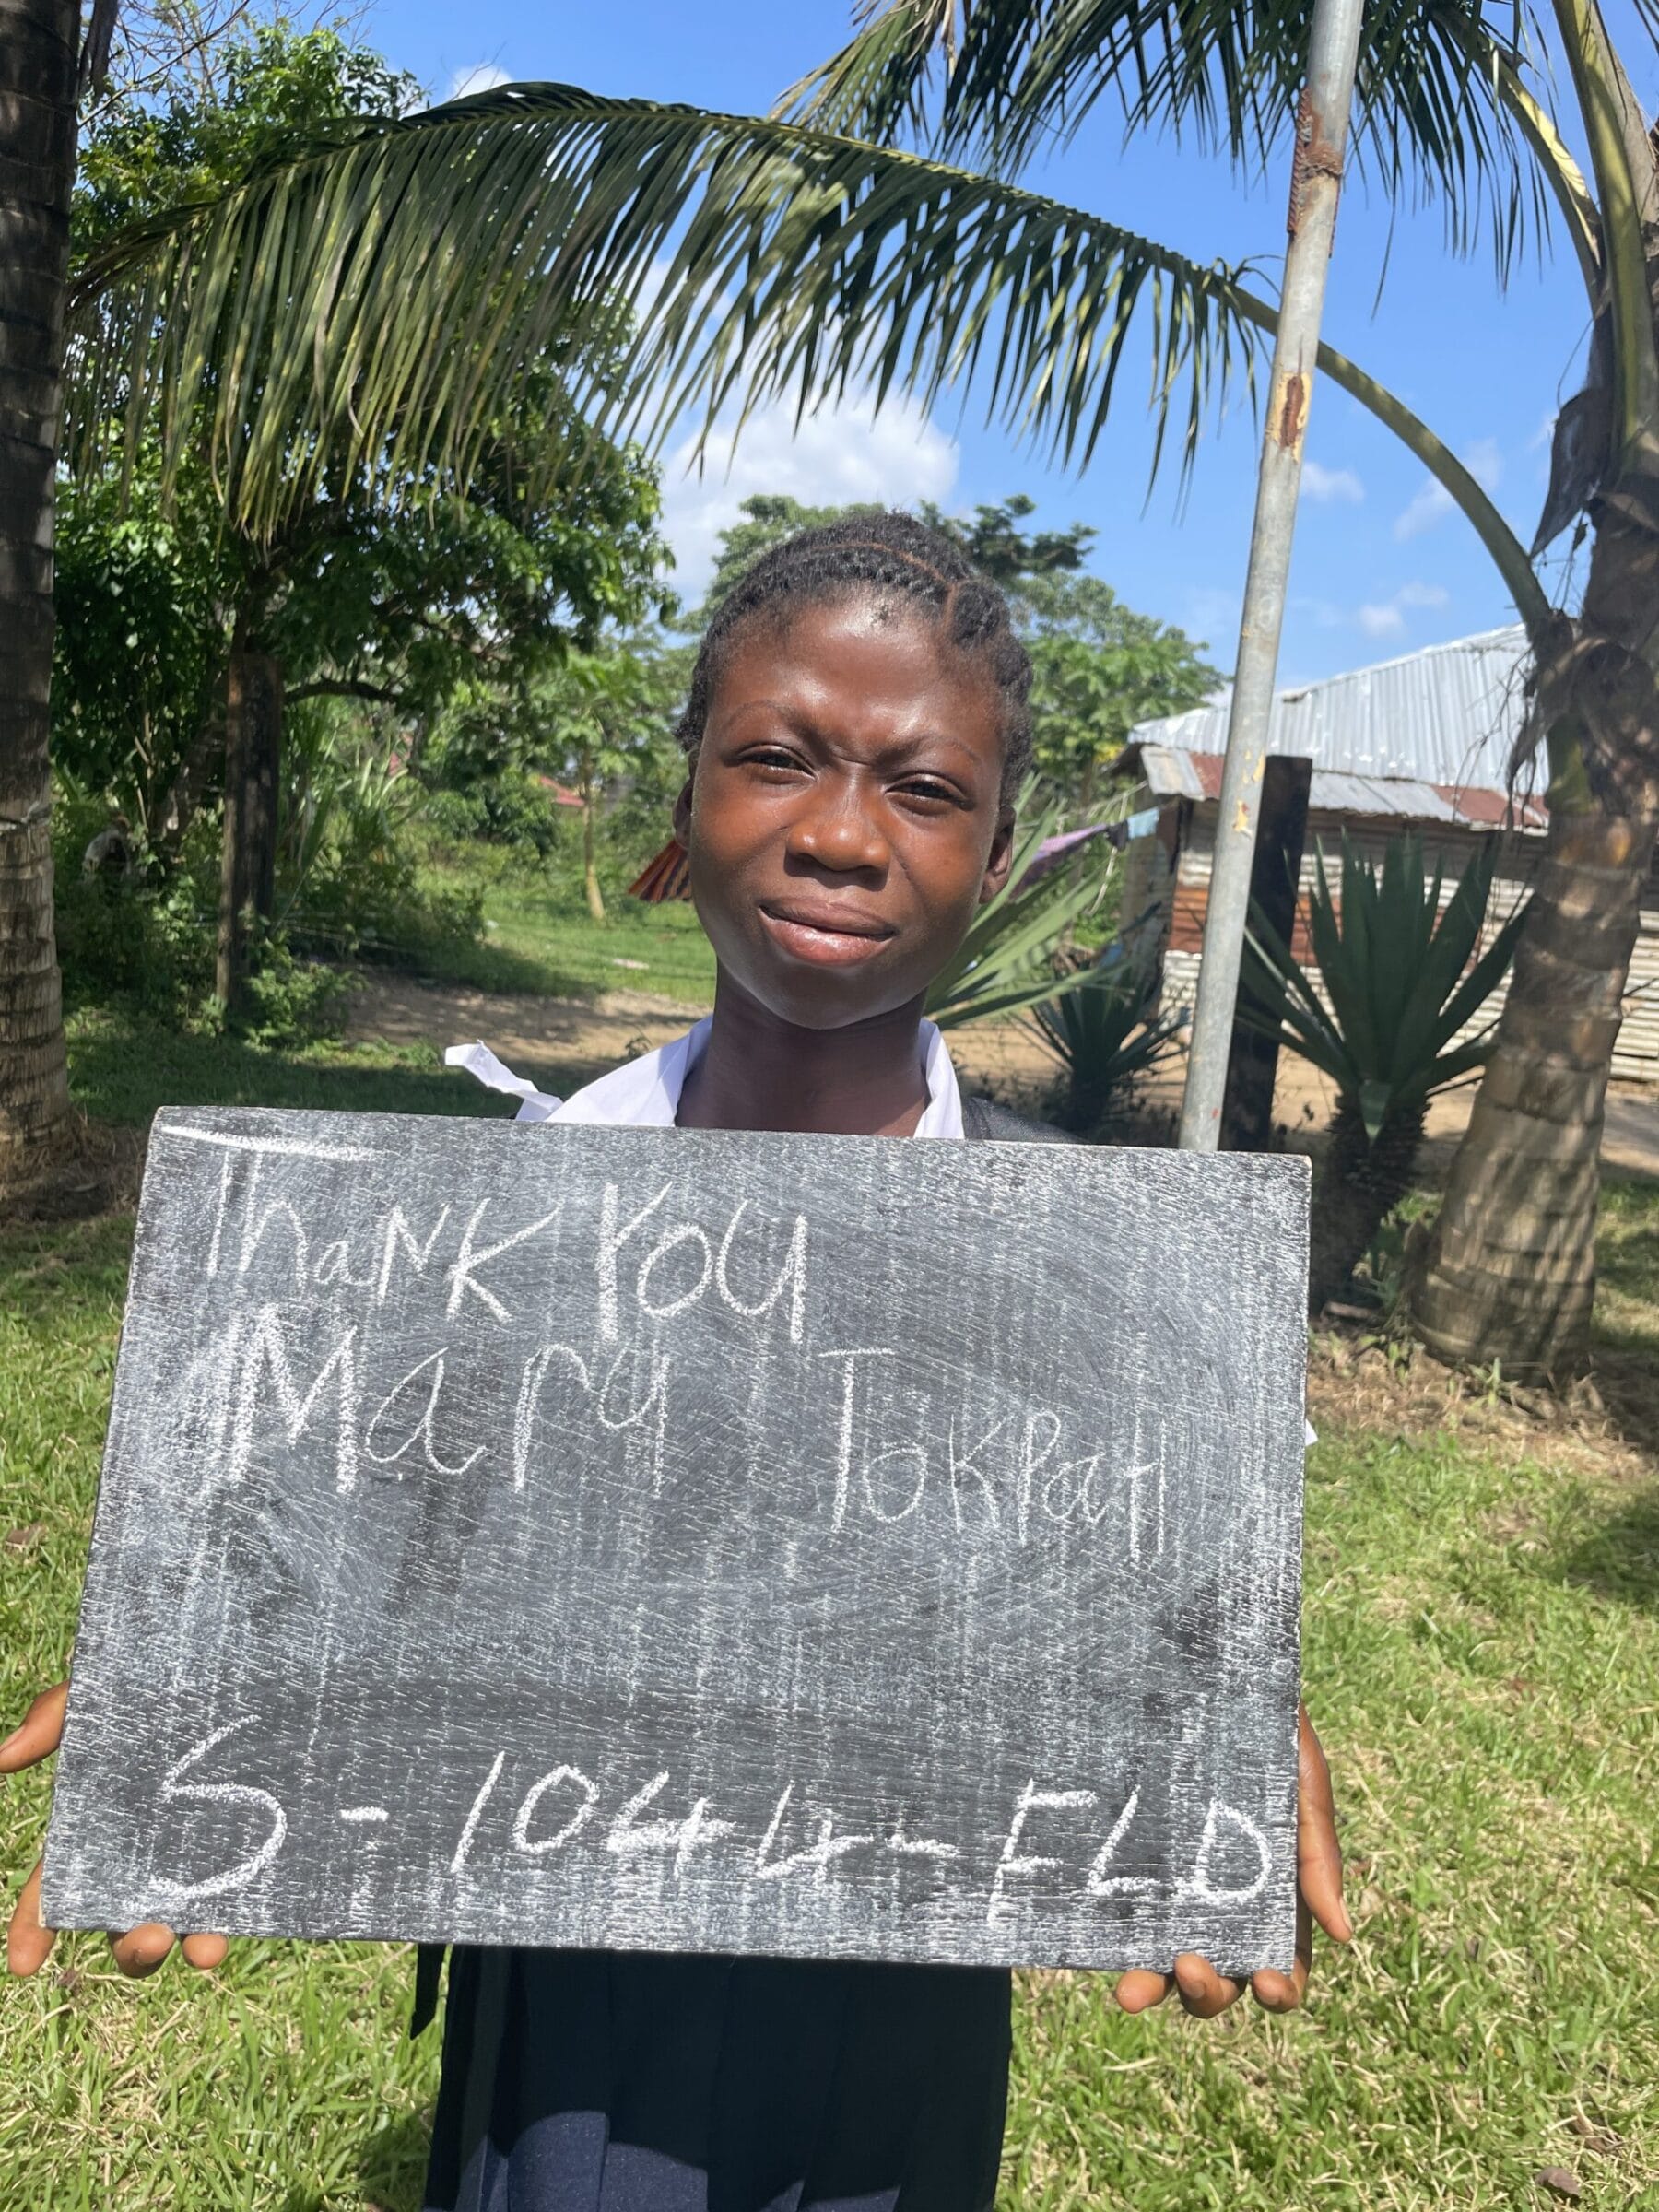 ThaNK You
Mary ToKPaH
S-1044-FLD